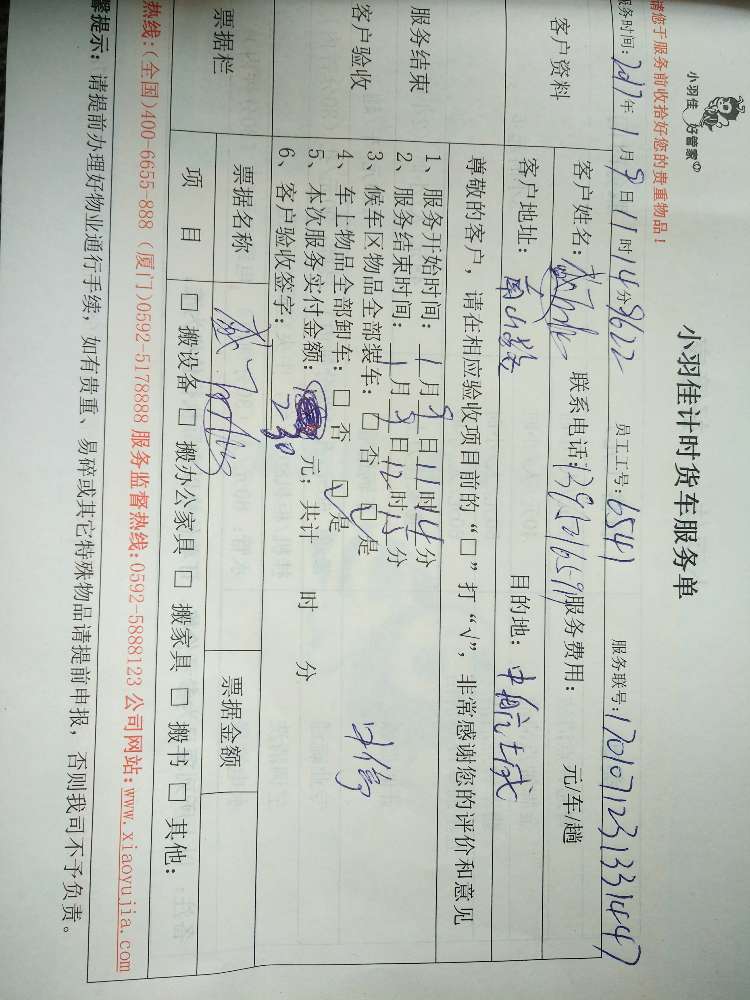 小羽佳 好管家
小羽佳计时货车服务单
请您于服务前收拾好您的贵重物品！
服务时间: 2017年 1月 9日 11时 14分 9622 员工工号: 6541 服务联号: 1701071231331447
客户资料
客户姓名: 联系电话: 服务费用: 元/车/趟
客户地址: 目的地:
尊敬的客户，请在相应验收项目前的“□”打“√”，非常感谢您的评价和意见
服务结束
客户验收
1、服务开始时间: 1月 9日 11时 14分
2、服务结束时间: 1月 9日 12时 15分
3、候车区物品全部装车: □ 否 ☑ 是
4、车上物品全部卸车: □ 否 ☑ 是
5、本次服务实付金额: 230 元; 共计 时 分
6、客户验收签字:
票据栏
票据名称 票据金额
项 目 □ 搬设备 □ 搬办公家具 □ 搬家具 □ 搬书 □ 其他:
热线:(全国)400-6655-888 (厦门)0592-5178888 服务监督热线:0592-5888123 公司网站:www.xiaoyujia.com
馨提示: 请提前办理好物业通行手续，如有贵重、易碎或其它特殊物品请提前申报，否则我司不予负责。